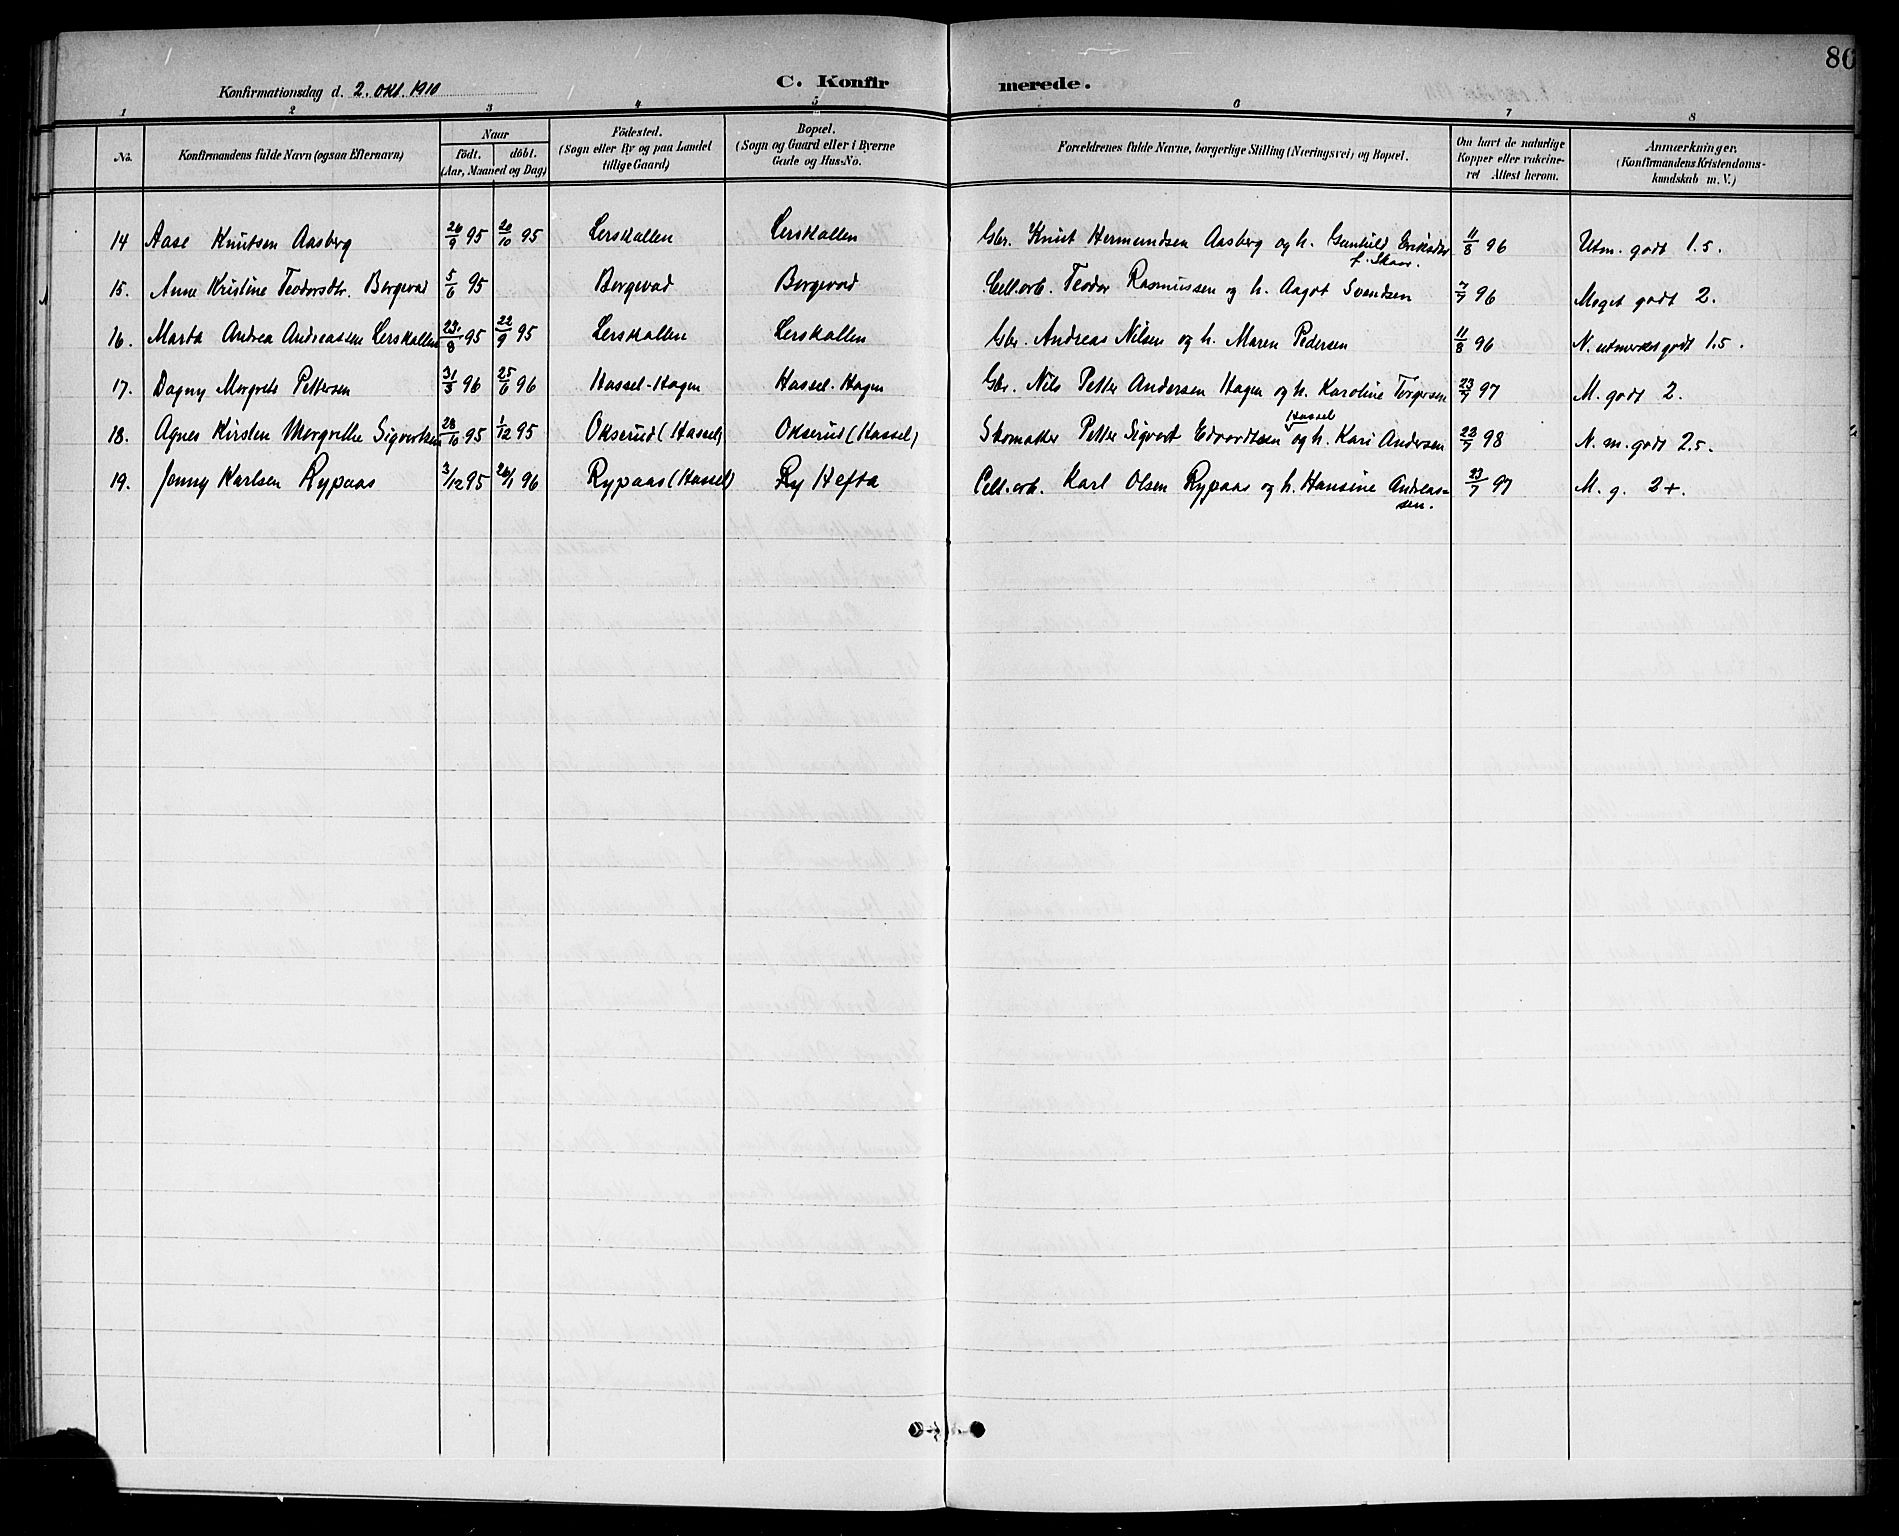 80
Konfirmationsdag d. 2. Okt. 1910
C. Konfirmerede.
1 2 3 4 5 6 7 8
No. Konfirmandens fulde Navn (ogsaa Efternavn) Naar født. døbt. (Aar, Maaned og Dag) Fødested. (Sogn eller By og paa Landet tillige Gaard) Bopæl. (Sogn og Gaard eller i Byerne Gade og Hus-No. Forældrenes fulde Navne, borgerlige Stilling (Næringsvei) og Bopæl. Om havt de naturlige Kopper eller vakcineret Attest herom. Anmærkninger. (Konfirmandens Kristendomskundskab m. V.)
14 Aase Knutsen Aasberg 26/9 95 20/10 95 Lerskallen Lerskallen Gbr. Knut Hermundsen Aasberg og h. Gunhild Eriksdtr f. Skaar. 11/8 96 Utm. godt 1.5.
15. Anne Kristine Teodorsdtr. Bergevad 5/6 95 Bergevad Bergevad Cell.arb. Teodor Rasmussen og h. Aagot Svendsen 7/7 96 Meget godt 2.
16. Marta Andrea Andreassen Lerskallen 23/8 95 22/9 95 Lerskallen Lerskallen Gbr. Andreas Nilsen og h. Maren Pedersen 11/8 96 N. utmerket godt 1.5.
17. Dagny Margrete Pettersen 31/3 96 25/6 96 Hassel-Hagen Hassel-Hagen Gbr. Nils Petter Andersen Hagen og h. Karoline Torgersen 23/7 97 M. godt 2.
18. Agnes Kirsten Margrethe Sigvertsen 28/10 95 1/12 95 Okserud (Hassel) Okserud (Hassel) Skomaker Petter Sigvart Edvardtsen Hassel og h. Kari Andersen 23/7 98 N. m. godt 2.5.
19. Jenny Karlsen Rypaas 3/12 95 26/1 96 Rypaas (Hassel) Ry Hefta Cell.arb. Karl Olsen Rypaas og h. Hansine Andreassen. 23/7 97 M. g. 2+.